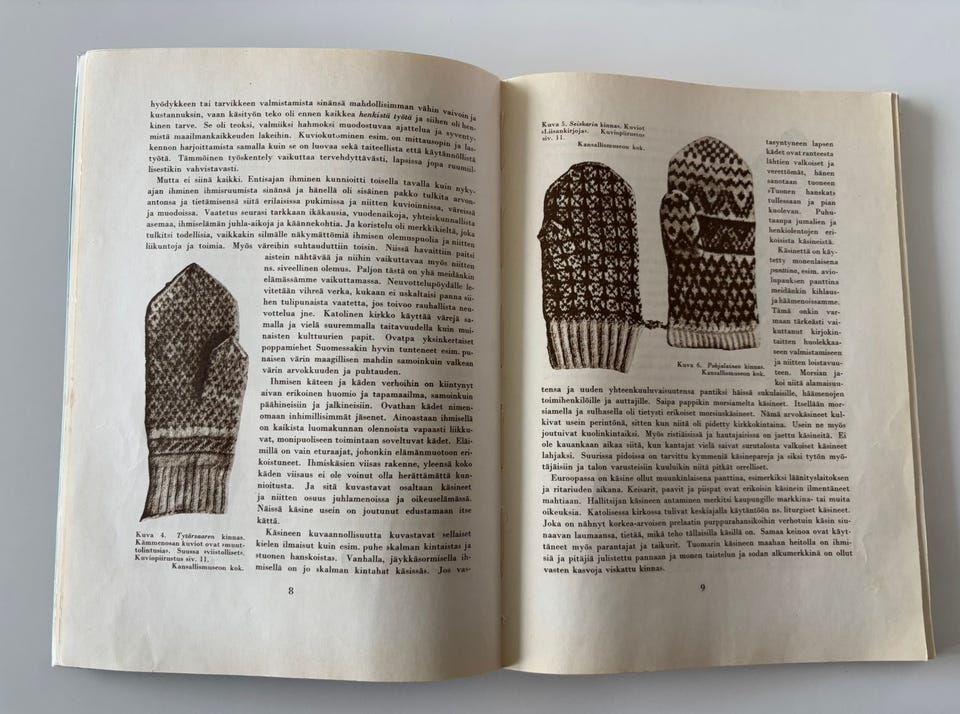 hyödykkeen tai tarvikkeen valmistamista sinänsä mahdollisimman vähin vaivoin ja
kustannuksin, vaan käsityön teko oli ennen kaikkea henkistä työtä ja siihen oli hen-
kinen tarve. Se oli teoksi, valmiiksi hahmoksi muodostuvaa ajattelua ja syventy-
mistä maailmankaikkeuden lakeihin. Kuviokutominen esim. on mittausopin ja las-
kennon harjoittamista samalla kuin se on luovaa sekä taiteellista että käytännöllistä
työtä. Tämmöinen työskentely vaikuttaa tervehdyttävästi, lapsissa jopa ruumiil-
lisestikin vahvistavasti.
Mutta ei siinä kaikki. Entisajan ihminen kunnioitti toisella tavalla kuin nyky-
ajan ihminen ihmisruumista sinänsä ja hänellä oli sisäinen pakko tulkita arvon-
antonsa ja tietämisensä siitä erilaisissa pukimissa ja niitten kuvioinnissa, väreissä
ja muodoissa. Vaatetus seurasi tarkkaan ikäkausia, vuodenaikoja, yhteiskunnallista
asemaa, ihmiselämän juhla-aikoja ja käännekohtia. Ja koristelu oli merkkikieltä, joka
tulkitsi todellisia, vaikkakin silmälle näkymättömiä ihmisen olemuspuolia ja niitten
liikuntoja ja toimia. Myös väreihin suhtauduttiin toisin. Niissä havaittiin paitsi
aistein nähtävää ja niihin vaikuttavaa myös niitten
ns. siveellinen olemus. Paljon tästä on yhä meidänkin
elämässämme vaikuttamassa. Neuvottelupöydälle le-
vitetään vihreä verka, kukaan ei uskaltaisi panna sii-
hen tulipunaista vaatetta, jos toivoo rauhallista neu-
vottelua jne. Katolinen kirkko käyttää värejä sa-
malla ja vielä suuremmalla taitavuudella kuin mui-
naisten kulttuurien papit. Ovatpa yksinkertaiset
poppamiehet Suomessakin hyvin tunteneet esim. pu-
naisen värin maagillisen mahdin samoinkuin valkean
värin arvokkuuden ja puhtauden.
Ihmisen käteen ja käden verhoihin on kiintynyt
aivan erikoinen huomio ja tapamaailma, samoinkuin
päähineisiin ja jalkineisiin. Ovathan kädet nimen-
omaan inhimillisimmät jäsenet. Ainoastaan ihmisellä
on kaikista luomakunnan olennoista vapaasti liikku-
vat, monipuoliseen toimintaan soveltuvat kädet. Eläi-
millä on vain eturaajat, johonkin elämänmuotoon eri-
koistuneet. Ihmiskäsien viisas rakenne, yleensä koko
käden viisaus ei ole voinut olla herättämättä kun-
nioitusta. Ja sitä kuvastavat osaltaan käsineet
ja niitten osuus juhlamenoissa ja oikeuselämässä.
Näissä käsine usein on joutunut edustamaan itse
kättä.
Käsineen kuvaannollisuutta kuvastavat sellaiset
kielen ilmaisut kuin esim. puhe skalman kintaista ja
stuonen hanskoista. Vanhalla, jäykkäsormisella ih-
misellä on jo skalman kintahat käsissäs. Jos vas-
Kuva 4. Tytärsaaren kinnas.
Kämmenosan kuviot ovat »muut-
tolintusia». Suussa »viistollset».
Kuviopiirustus siv. 11.
Kansallismuseon kok.
8
Kuva 5. Seiskarin kinnas. Kuviot
»Liisankirjoja». Kuviopiirustus
siv. 11.
Kansallismuseon kok.
tasyntyneen lapsen
kädet ovat ranteesta
lähtien valkoiset ja
verettömät, hänen
sanotaan tuoneen
»Tuonen hanskat»
tullessaan ja pian
kuolevan. Puhu-
taanpa jumalien ja
henkiolentojen eri-
koisista käsineistä.
Käsinettä on käy-
tetty monenlaisena
panttina, esim. avio-
lupauksen panttina
meidänkin kihlaus-
ja häämenoissamme.
Tämä onkin var-
maan tärkeästi vai-
kuttanut kirjokin-
taitten huolekkaa-
seen valmistamiseen
ja niitten loistavuu-
teen. Morsian ja-
koi niitä alamaisuu-
Kuva 6. Pohjalaisen kinnas.
Kansallismuseon kok.
tensa ja uuden yhteenkuuluvaisuutensa pantiksi häissä sukulaisille, häämenojen
toimihenkilöille ja auttajille. Saipa pappikin morsiamelta käsineet. Itsellään mor-
siamella ja sulhasella oli tietysti erikoiset morsiuskäsineet. Nämä arvokäsineet kul-
kivat usein perintönä, sitten kun niitä oli pidetty kirkkokintaina. Usein ne myös
joutuivat kuolinkintaiksi. Myös ristiäisissä ja hautajaisissa on jaettu käsineitä. Ei
ole kauankaan aikaa siitä, kun kantajat vielä saivat surutalosta valkoiset käsineet
lahjaksi. Suurissa pidoissa on tarvittu kymmeniä käsinepareja ja siksi tytön myö-
täjäisiin ja talon varusteisiin kuuluikin niitä pitkät orrelliset.
Euroopassa on käsine ollut muunkinlaisena panttina, esimerkiksi läänityslaitoksen
ja ritariuden aikana. Keisarit, paavit ja piispat ovat erikoisin käsinein ilmentäneet
mahtiaan. Hallitsijan käsineen antaminen merkitsi kaupungille markkina- tai muita
oikeuksia. Katolisessa kirkossa tulivat keskiajalla käytäntöön ns. liturgiset käsineet.
Joka on nähnyt korkea-arvoisen prelaatin purppurahansikoihin verhotuin käsin siu-
naavan laumaansa, tietää, mikä teho tällaisilla käsillä on. Samaa keinoa ovat käyt-
täneet myös parantajat ja taikurit. Tuomarin käsineen maahan heitolla on ihmi-
siä ja pitäjiä julistettu pannaan ja monen taistelun ja sodan alkumerkkinä on ollut
vasten kasvoja viskattu kinnas.
9